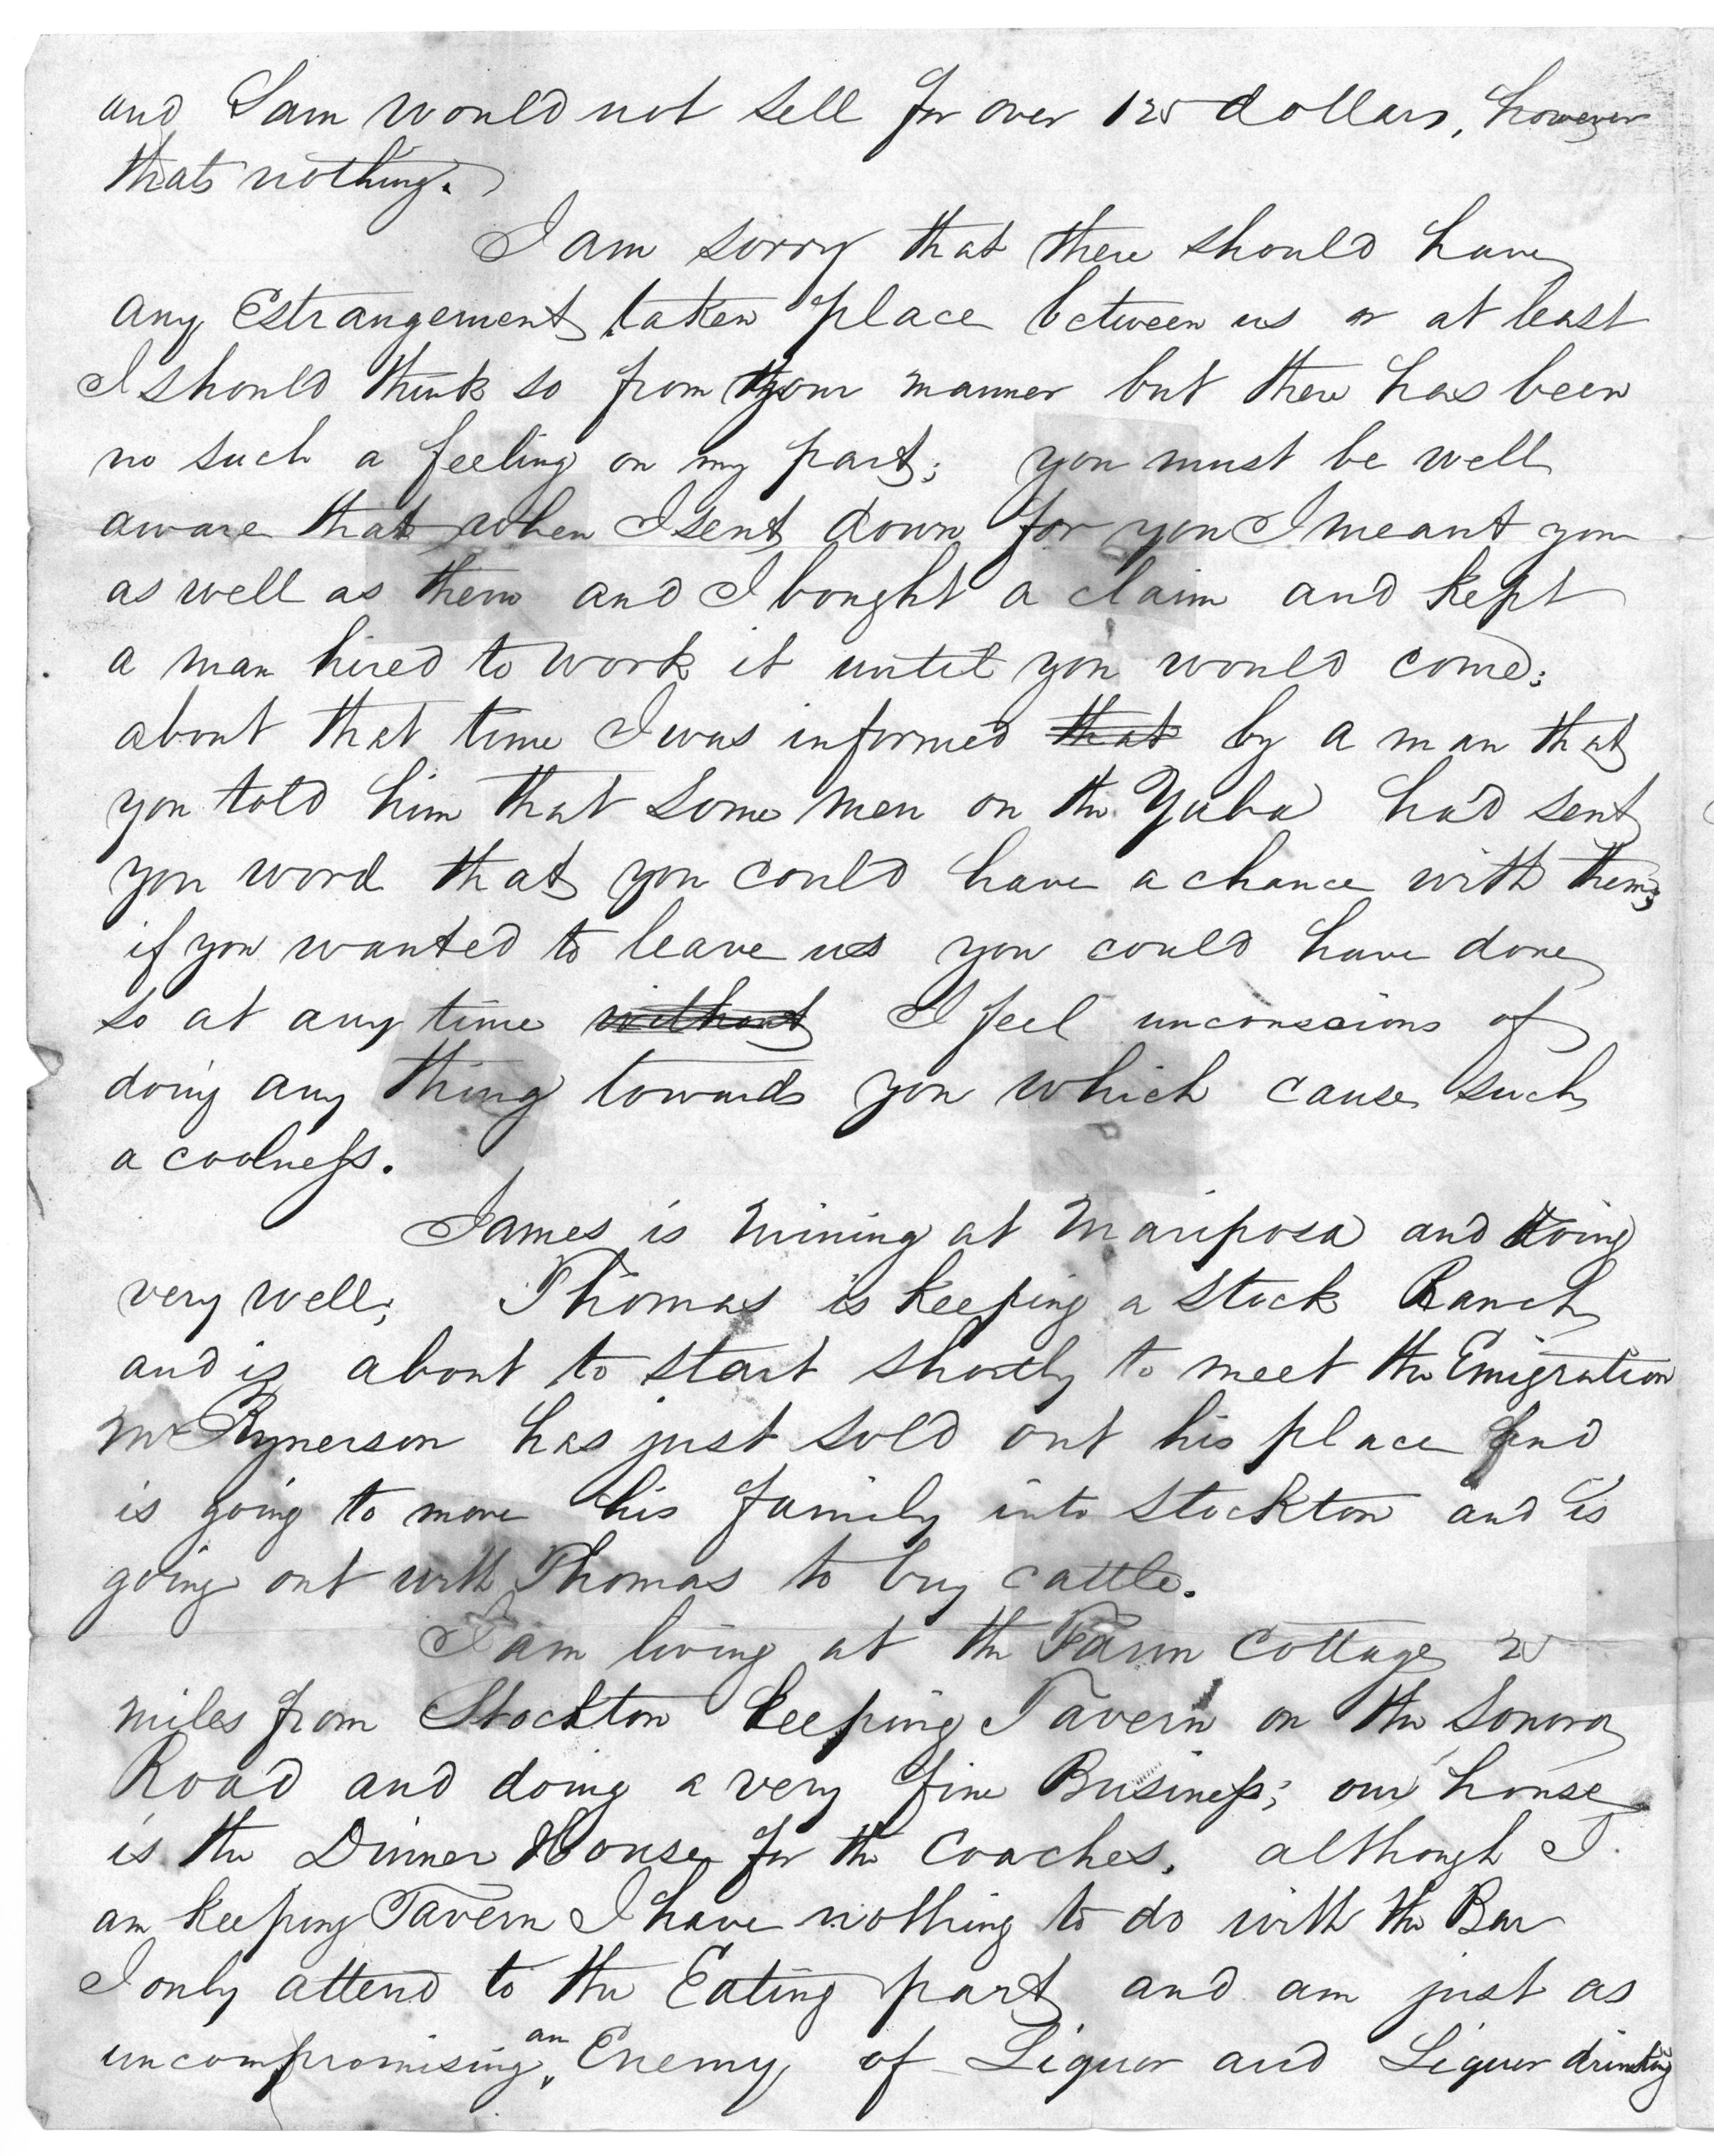 and Sam would not sell for over 125 dollars, however
thats nothing.
I am sorry that there should have
any Estrangement taken place between us or at least
I should think so from your manner but there has been
no such a feeling on my part; you must be well
aware that when I sent down for you I meant you
as well as them and I bought a claim and kept
a man hired to work it until you would come;
about that time I was informed that by a man that
you told him that some men on the Yuba had sent
you word that you could have a chance with them;
if you wanted to leave us you could have done
so at any time without I feel unconscious of
doing any thing towards you which cause such
a coolness.
James is mining at Mariposa and doing
very well; Thomas is keeping a Stock Ranch
and is about to start shortly to meet the Emigration
Mr Rynerson has just sold out his place and
is going to move his family into Stockton and is
going out with Thomas to buy cattle.
I am living at the Farm Cottage 25
miles from Stockton keeping Tavern on the Sonora
Road and doing a very fine Business; our house
is the Dinner House for the Coaches, although I
am keeping Tavern I have nothing to do with the Bar
I only attend to the Eating part and am just as
uncompromising an Enemy of Liquor and Liquor drinking